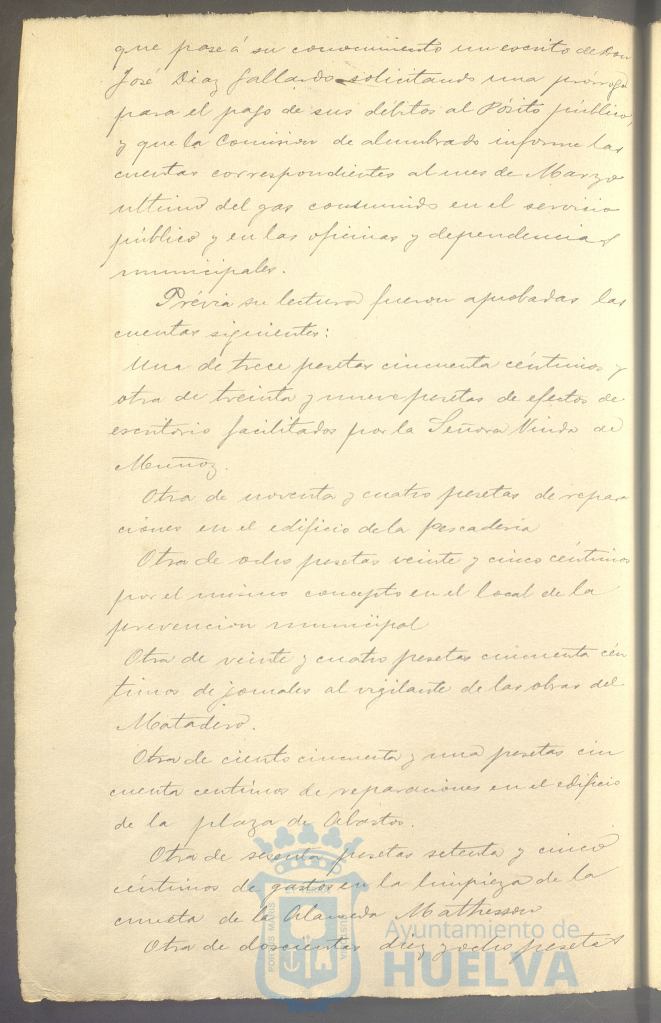 que pase á su conocimiento un escrito de Don
José Diaz Gallardo solicitando una prórroga
para el pago de sus débitos al Pósito público,
y que la Comision de alumbrado informe las
cuentas correspondientes al mes de Marzo
ultimo del gas consumido en el servicio
público y en las oficinas y dependencias
municipales.
Prévia su lectura fueron aprobadas las
cuentas siguientes:
Una de trece pesetas cincuenta céntimos y
otra de treinta y nueve pesetas de efectos de
escritorio facilitados por la Señora Viuda de
Muñoz.
Otra de noventa y cuatro pesetas de repara
ciones en el edificio de la pescaderia
Otra de ocho pesetas veinte y cinco céntimos
por el mismo concepto en el local de la
prevencion municipal
Otra de veinte y cuatro pesetas cincuenta cén
timos de jornales al vigilante de las obras del
Matadero.
Otra de ciento cincuenta y una pesetas cin
cuenta centimos de reparaciones en el edificio
de la plaza de Abastos.
Otra de sesenta pesetas setenta y cinco
céntimos de gastos en la limpieza de la
cuneta de la Alameda Mathesson
Otra de doscientas diez y ocho pesetas
PORTUS MARIS
Ayuntamiento de
HUELVA